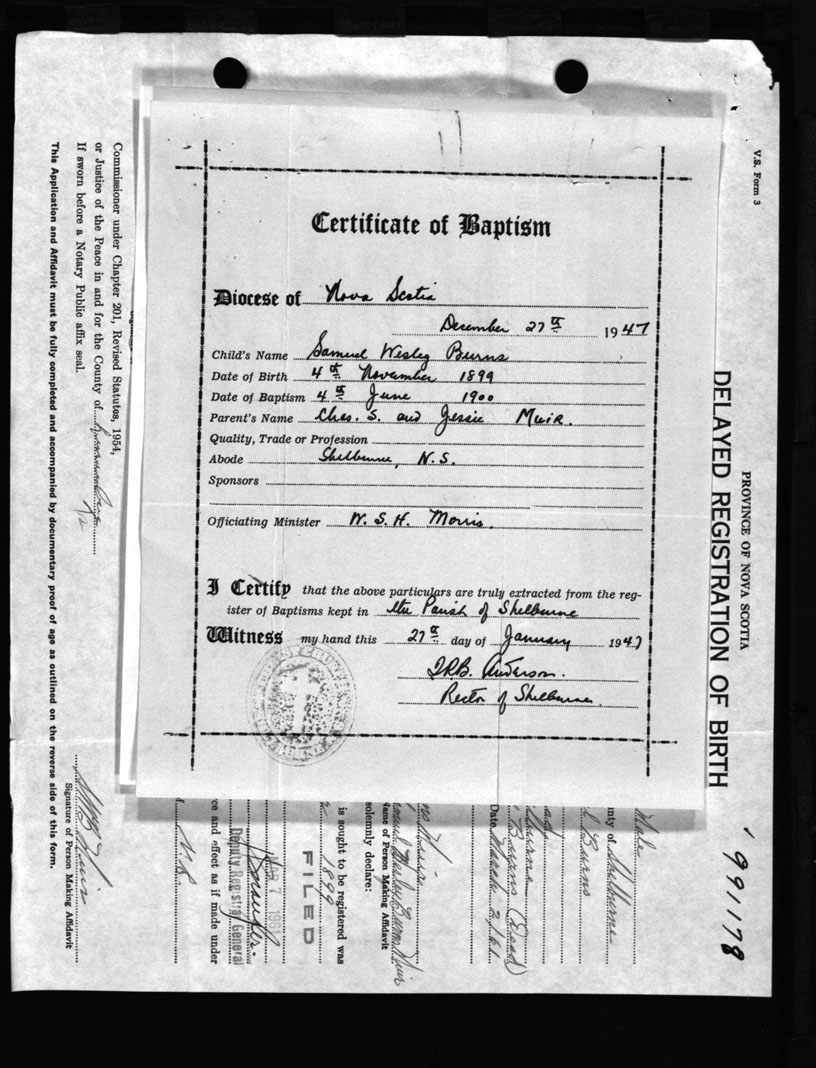 Certificate of Baptism
Diocese of Nova Scotia
December 27th 1947
Child's Name Samuel Wesley Burns
Date of Birth 4th November 1899
Date of Baptism 4th June 1900
Parent's Name Chas. S. and Jessie Muir.
Quality, Trade or Profession
Abode Shelburne, N.S.
Sponsors
Officiating Minister W. S. H. Morris.
I Certify that the above particulars are truly extracted from the reg-
ister of Baptisms kept in the Parish of Shelburne
Witness my hand this 27th day of January 1947
Anderson.
Rector of Shelburne.
V.S. Form 3
PROVINCE OF NOVA SCOTIA
DELAYED REGISTRATION OF BIRTH
991178
Male
nty of Shelburne
Burns
Burns (Dead)
Date March 2, 1961
Name of Person Making Affidavit
solemnly declare:
is sought to be registered was
1899
FILED
MAR 7 196
Deputy Registrar General
ce and effect as if made under
N.S.
Signature of Person Making Affidavit
Commissioner under Chapter 201, Revised Statutes, 1954,
or Justice of the Peace in and for the County of
If sworn before a Notary Public affix seal.
This Application and Affidavit must be fully completed and accompanied by documentary proof of age as outlined on the reverse side of this form.